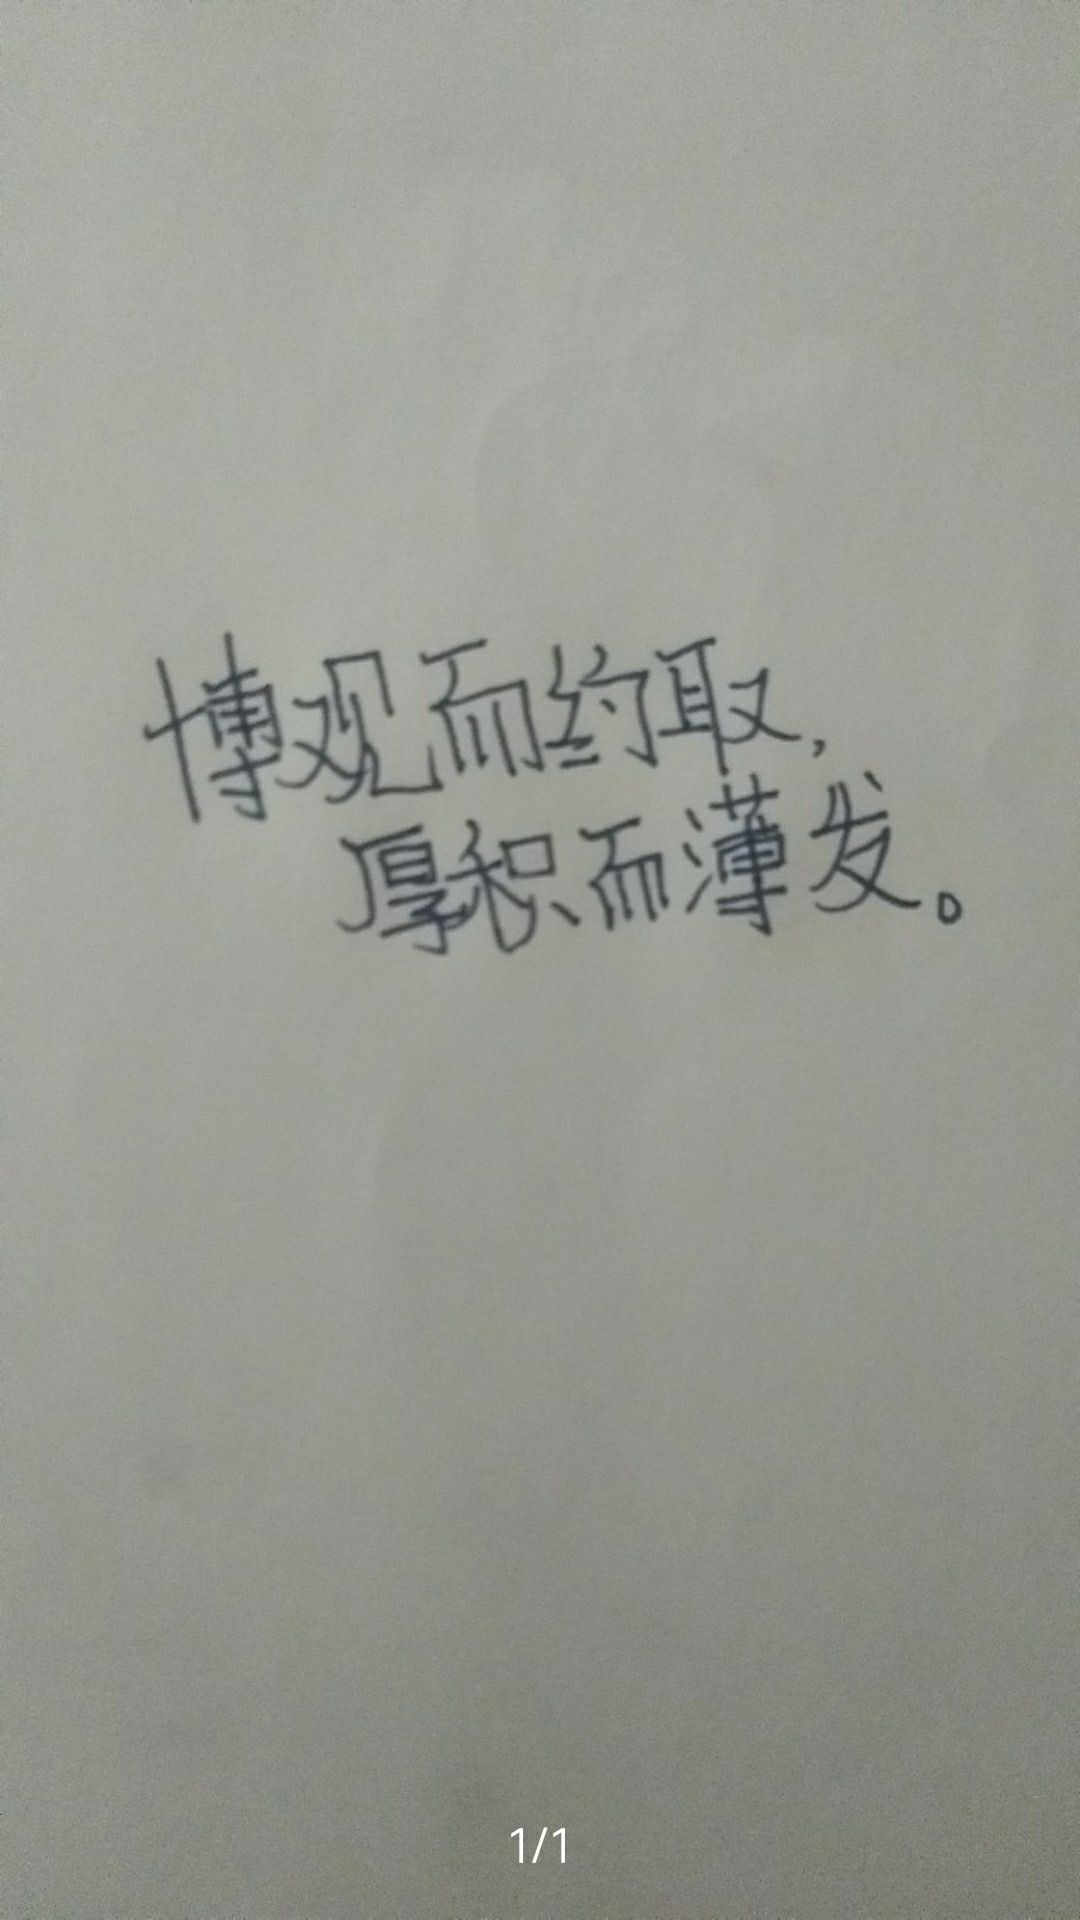 博观而约取,
厚积而薄发。
1/1